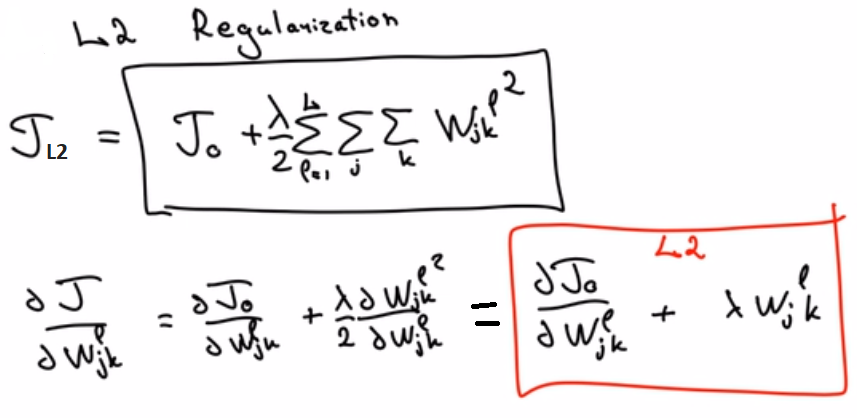 L2 Regularization
J_{L2} = J_0 + \frac{\lambda}{2} \sum_{\ell=1}^{L} \sum_{j} \sum_{k} W_{jk}^{\ell 2}
L2
\frac{\partial J}{\partial W_{jk}^{\ell}} = \frac{\partial J_0}{\partial W_{jk}^{\ell}} + \frac{\lambda}{2} \frac{\partial W_{jk}^{\ell 2}}{\partial W_{jk}^{\ell}} = \frac{\partial J_0}{\partial W_{jk}^{\ell}} + \lambda W_{jk}^{\ell}